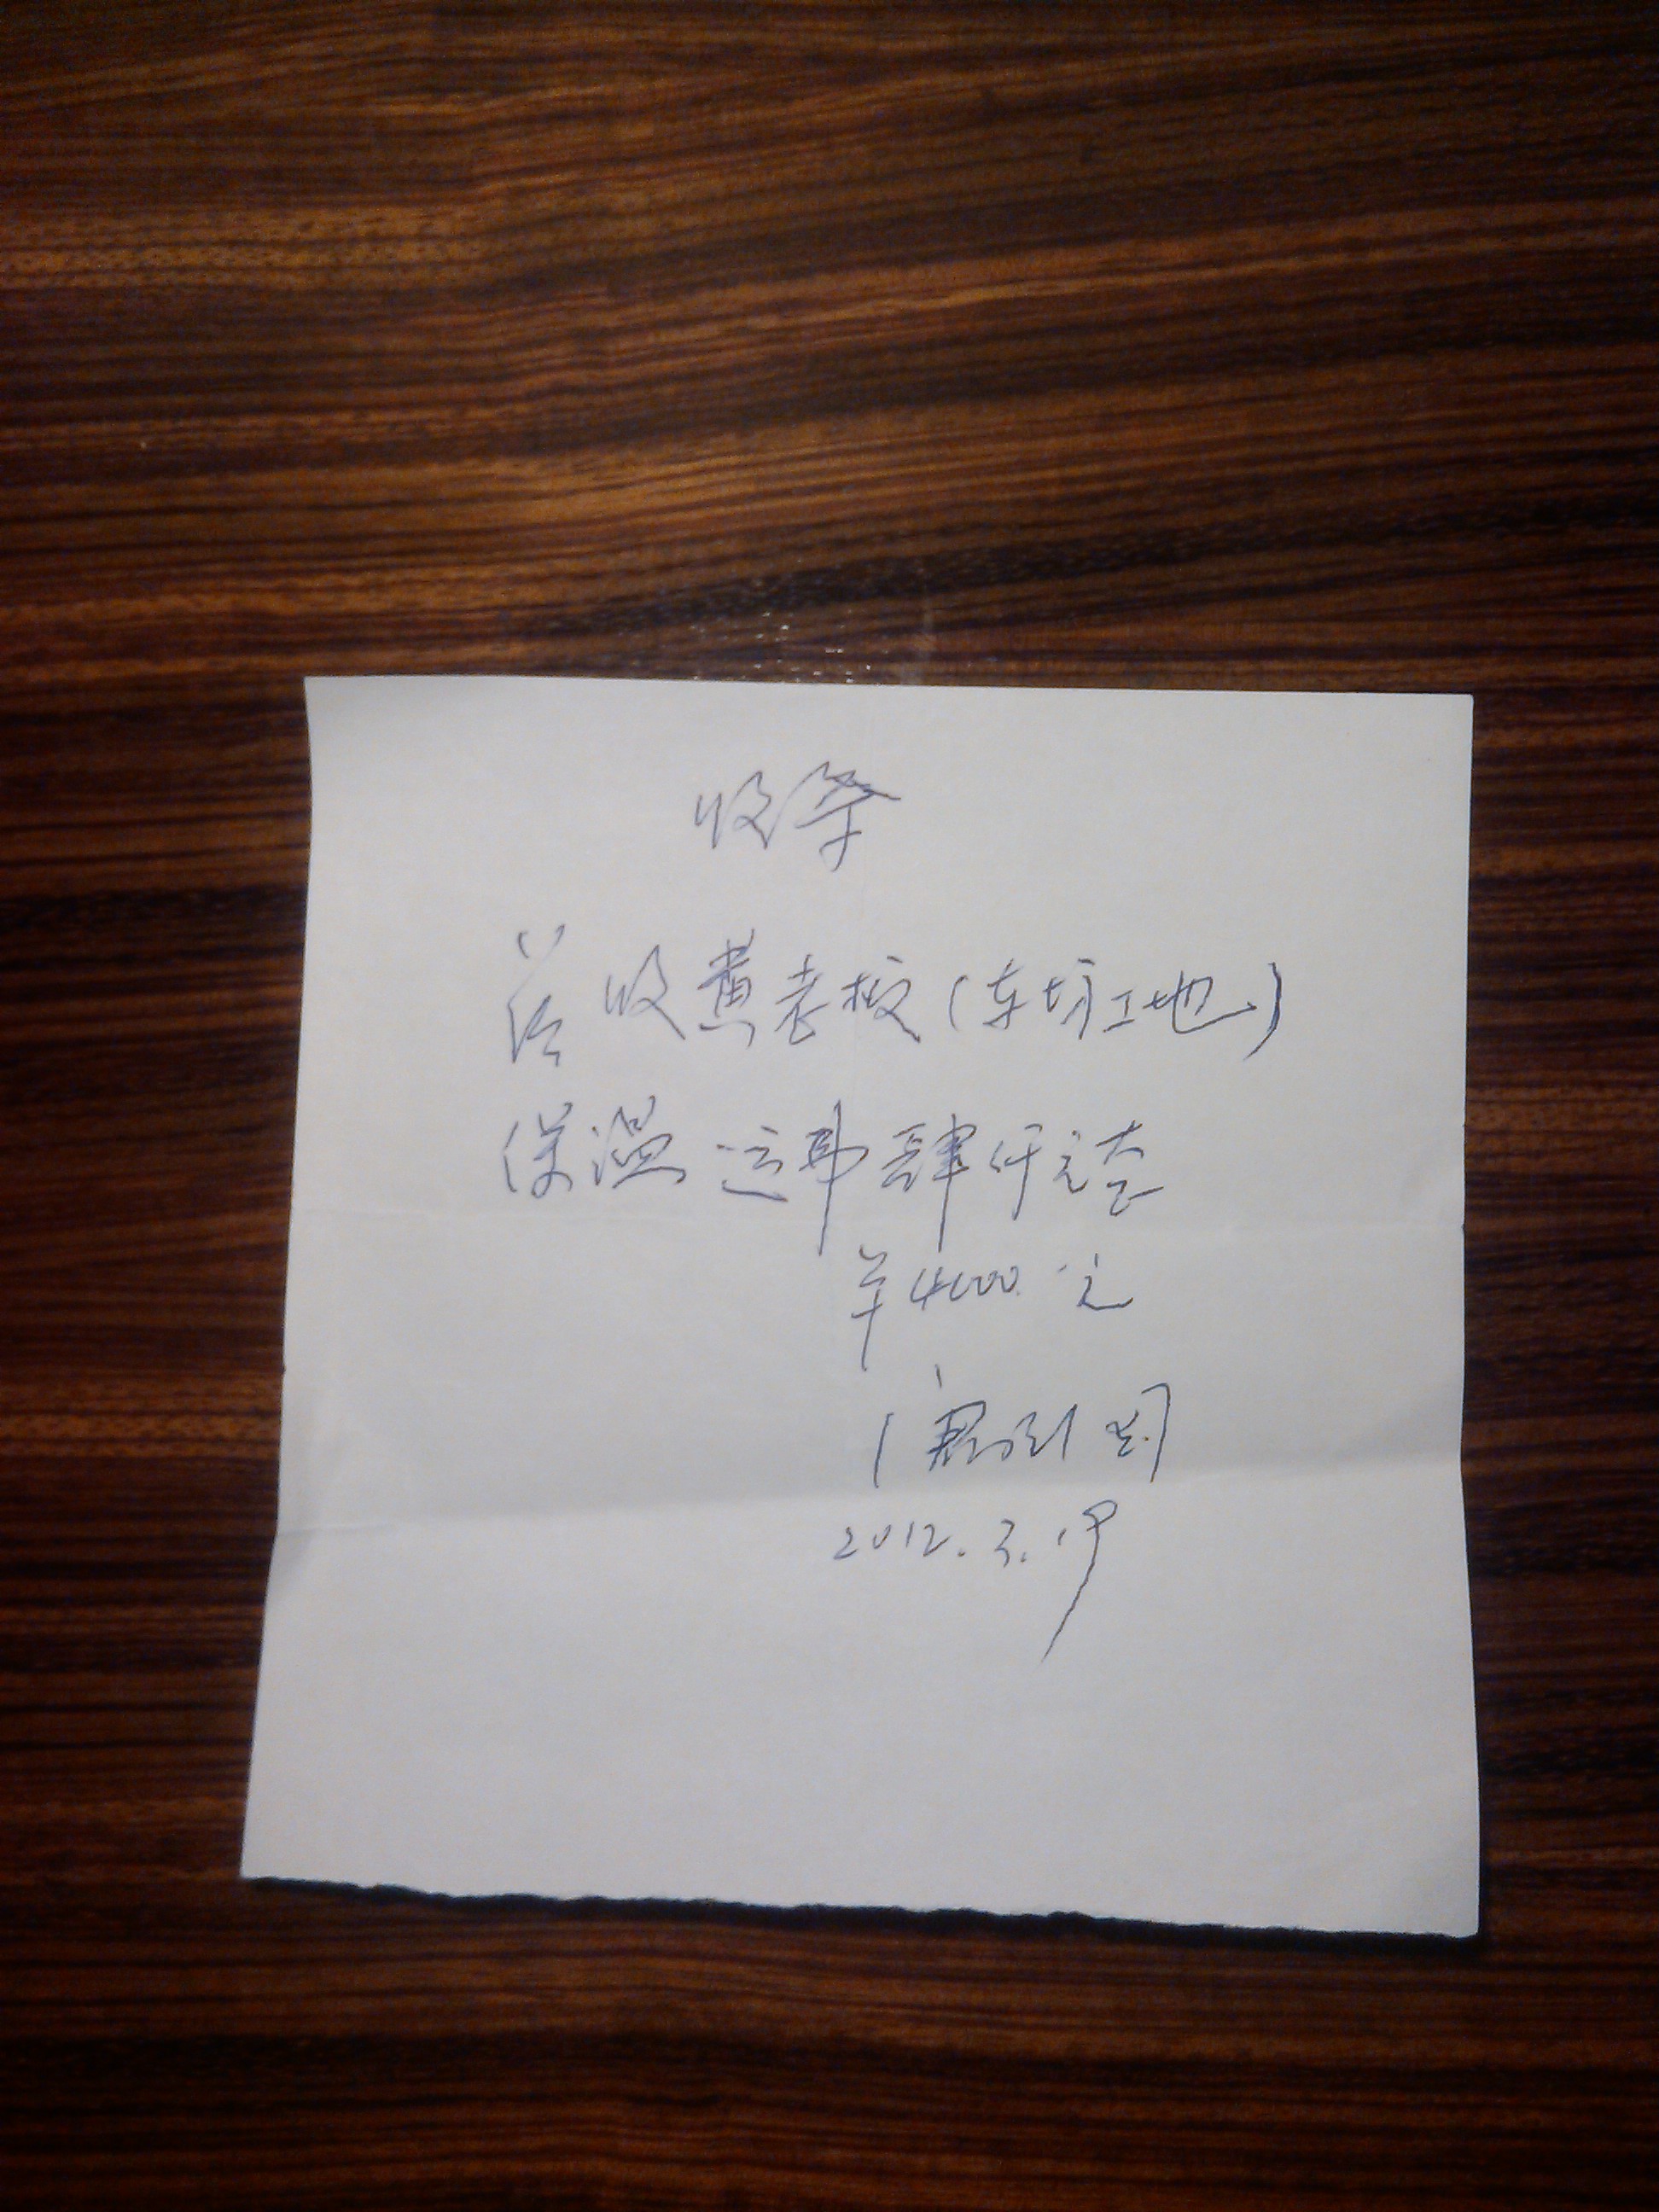 收条
兹收黄老板(车坊工地)
保温运费肆仟元整
￥4000元
2012.3.19